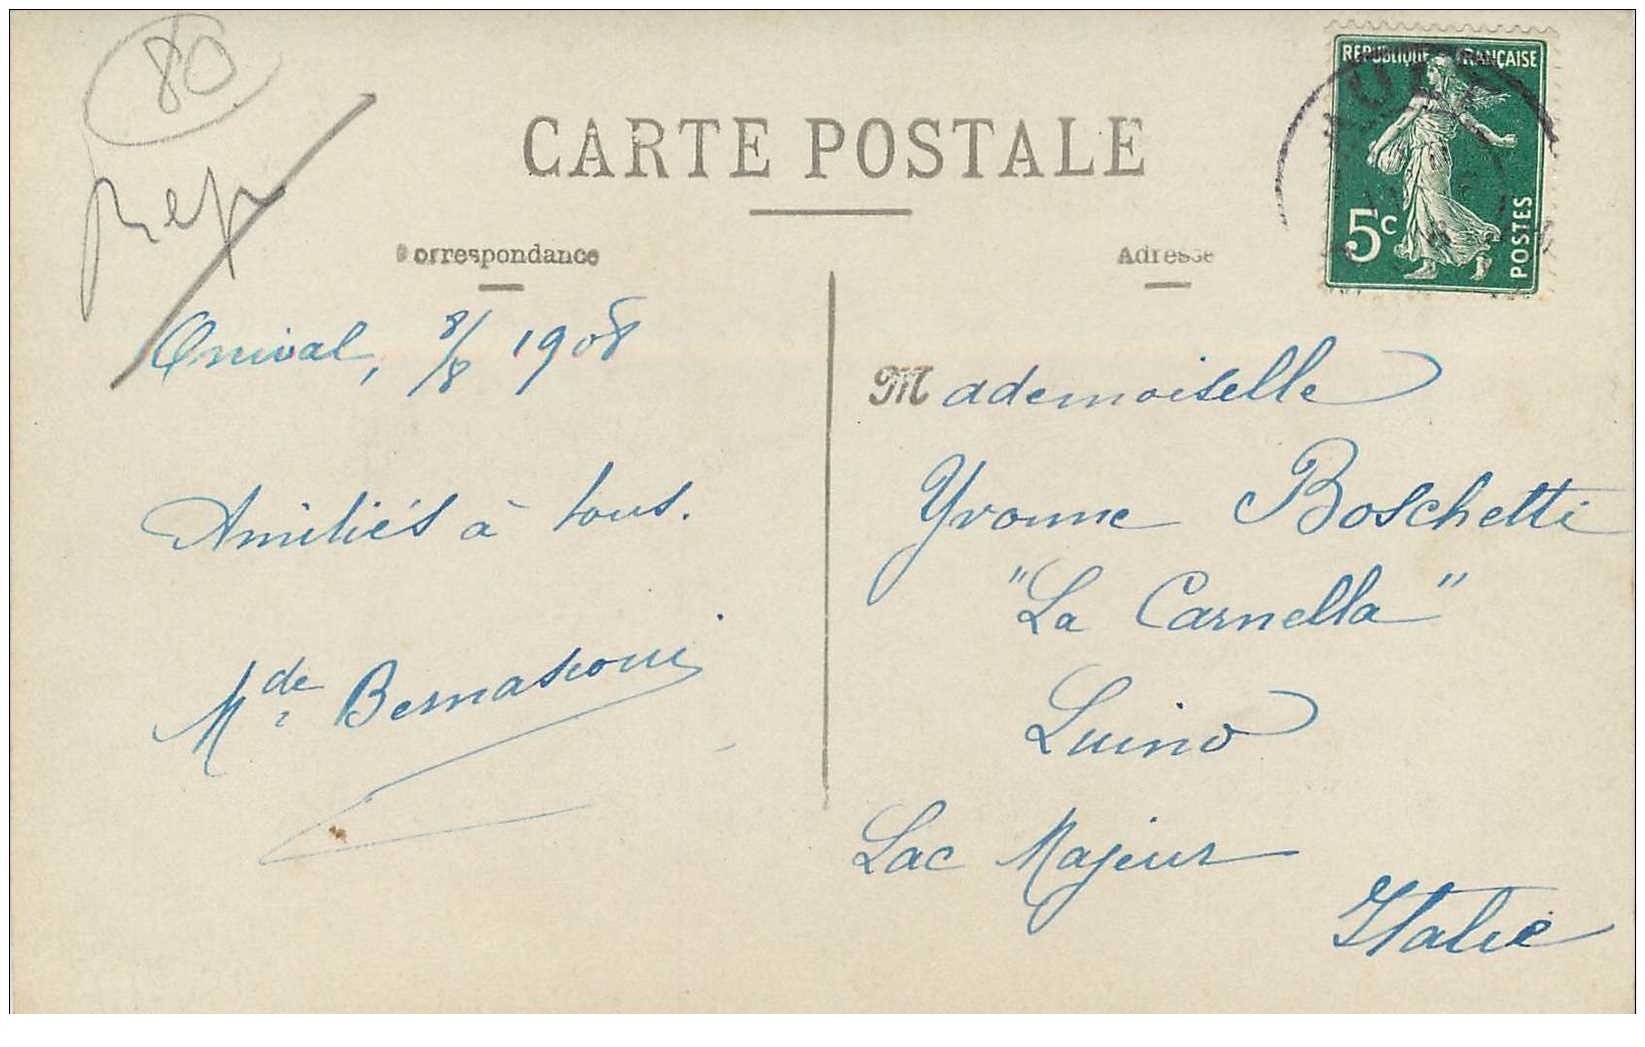 80
Rep
CARTE POSTALE
RÉPUBLIQUE FRANÇAISE
5c
POSTES
Correspondance
Adresse
Onival, 8/8 1908
Amitiés à tous.
Mde Bernasconi
Mademoiselle
Yvonne Boschetti
"La Carnella"
Luino
Lac Majeur
Italie